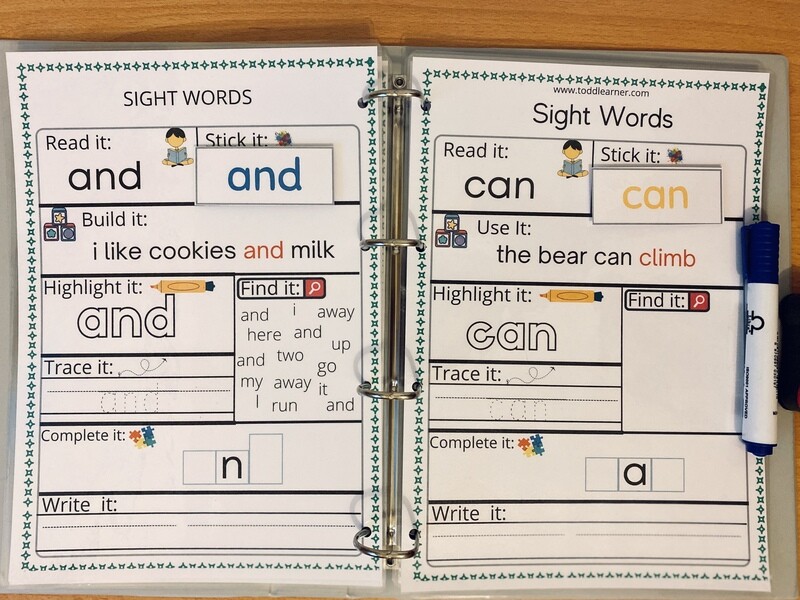 SIGHT WORDS
Read it:
and
Stick it:
and
Build it:
i like cookies and milk
Highlight it:
and
Find it:
and i away
here and up
and two go
my away it
I run and
Trace it:
and
Complete it:
n
Write it:
www.toddlearner.com
Sight Words
Read it:
can
Stick it:
can
Use It:
the bear can climb
Highlight it:
can
Find it:
Trace it:
can
Complete it:
a
Write it: